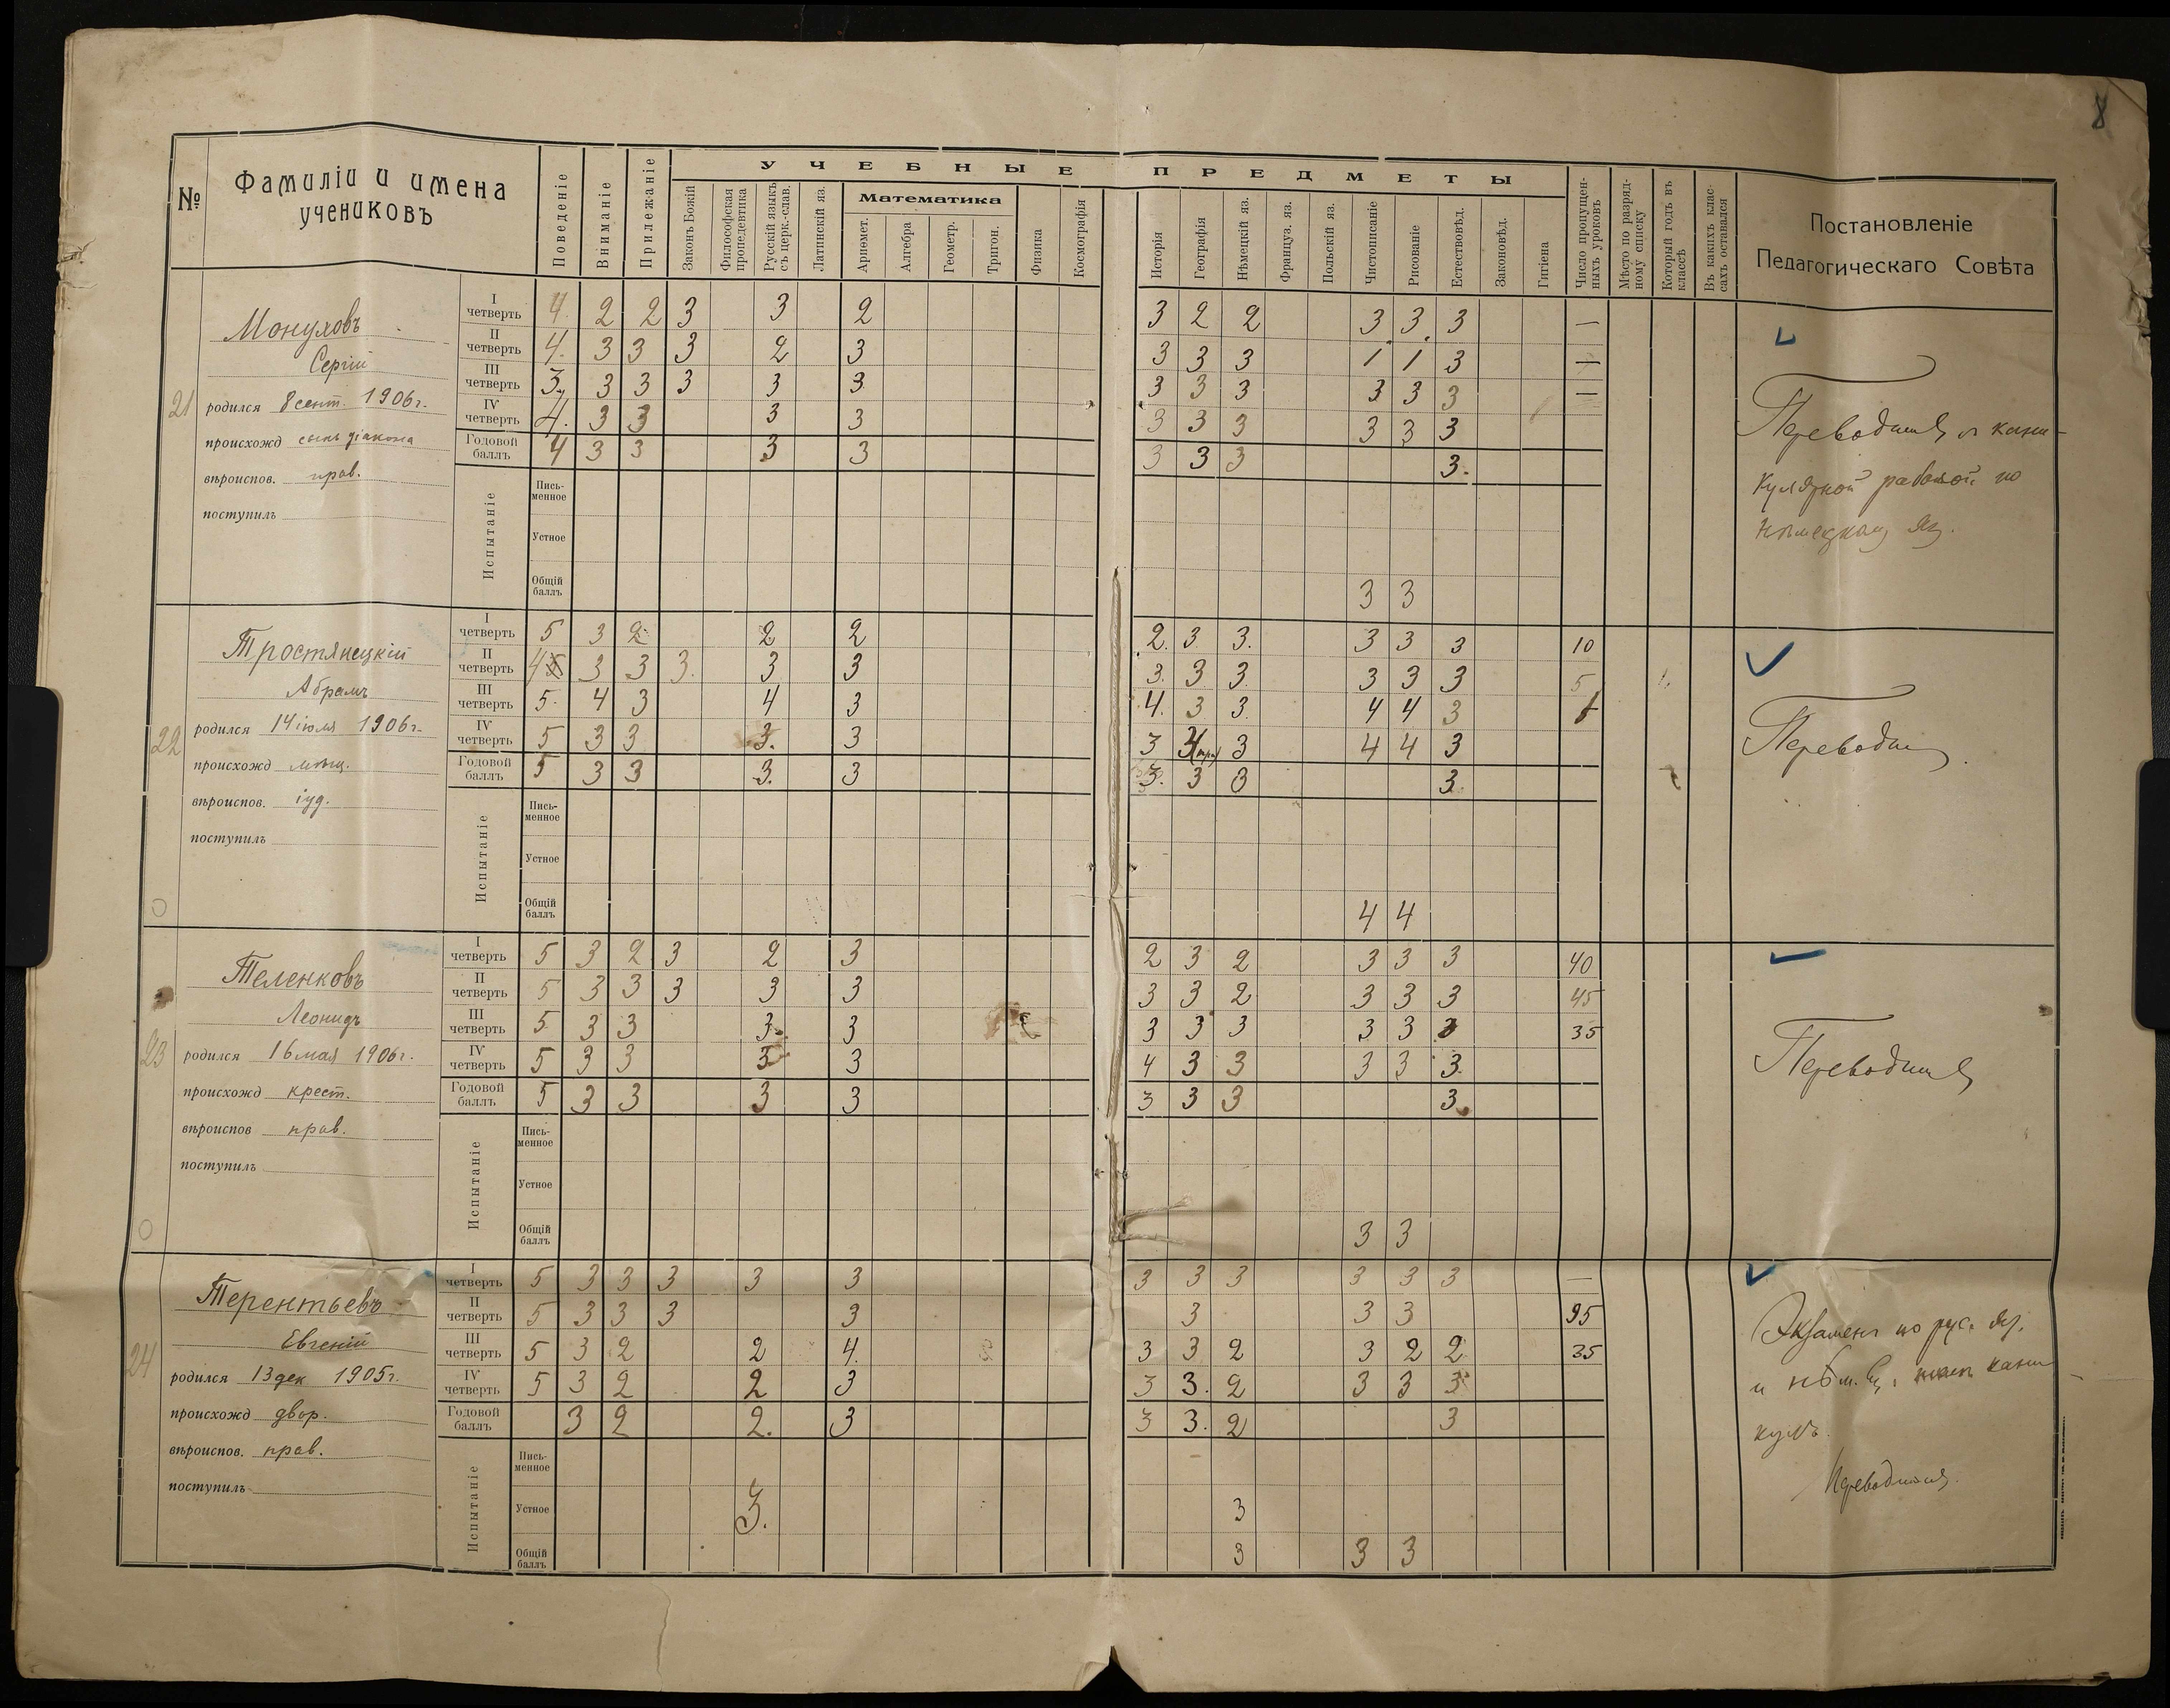 8
№ Фамиліи и имена учениковъ Поведеніе Вниманіе Прилежаніе УЧЕБНЫЕ ПРЕДМЕТЫ
Законъ Божій Философская пропедевтика Русскій языкъ съ церк.-слав. Латинскій яз. Математика Ариѳмет. Алгебра Геометр. Тригон. Физика Космографія Исторія Географія Нѣмецкій яз. Француз. яз. Польскій яз. Чистописаніе Рисованіе Естествовѣд. Законовѣд. Гигіена
Число пропущенныхъ уроковъ Мѣсто по разрядному списку Который годъ въ классѣ Въ какихъ классахъ оставался Постановленіе Педагогическаго Совѣта
21
Сергій
родился 8 сент. 1906 г.
происхожд сынъ діакона
вѣроиспов. прав.
поступилъ
I четверть 4. 2 2 3 3 2 3 2 2 3. 3. 3 —
II четверть 4. 3 3 3 2 3 3 3 3 1 1 3 —
III четверть 3. 3 3 3 3 3 3 3 3 3 3 3 —
IV четверть 4. 3 3 3 3 3 3 3 3 3 3
Годовой баллъ 4 3 3 3 3 3 3 3 3.
Испытаніе
Письменное
Устное
Общій баллъ 3 3
Переводится съ кани-
кулярной работой по
нѣмецкому яз.
22
Тростянецкій
Абрамъ
родился 14 іюля 1906 г.
происхожд мѣщ.
вѣроиспов. іуд.
поступилъ
I четверть 5 3 2 2 2 2. 3 3. 3 3 3 10
II четверть 4 3 3 3. 3 3 3. 3 3. 3 3 3 5
III четверть 5. 4 3 4 3 4. 3 3. 4 4 3
IV четверть 5 3 3 3. 3 3 3 4 4 3
Годовой баллъ 5 3 3 3. 3 3. 3 3 3.
Испытаніе
Письменное
Устное
Общій баллъ 4 4
Переводится
23
Теленковъ
Леонидъ
родился 16 мая 1906 г.
происхожд крест.
вѣроиспов прав.
поступилъ
I четверть 5 3 2 3 2 3 2 3 2 3 3 3 40
II четверть 5 3 3 3 3 3 3 3 2 3 3 3 45
III четверть 5 3 3 3. 3 3 3 3 3 3 3 35
IV четверть 5 3 3 3 3 4 3 3 3 3 3.
Годовой баллъ 5 3 3 3 3 3 3 3 3.
Испытаніе
Письменное
Устное
Общій баллъ 3 3
Переводится
24
Терентьевъ
Евгеній
родился 13 дек 1905 г.
происхожд двор.
вѣроиспов. прав.
поступилъ
I четверть 5 3 3 3 3 3 3 3 3 3 3 3 —
II четверть 5 3 3 3 3 3 3 3 95
III четверть 5 3 2 2 4. 3 3 2 3 2 2 35
IV четверть 5 3 2 2 3 3 3. 2 3 3 3
Годовой баллъ 3 2 2. 3 3 3. 2 3
Испытаніе
Письменное
Устное 3. 3
Общій баллъ 3 3 3
Экзаменъ по рус. яз.
и нѣм.
Переводится.